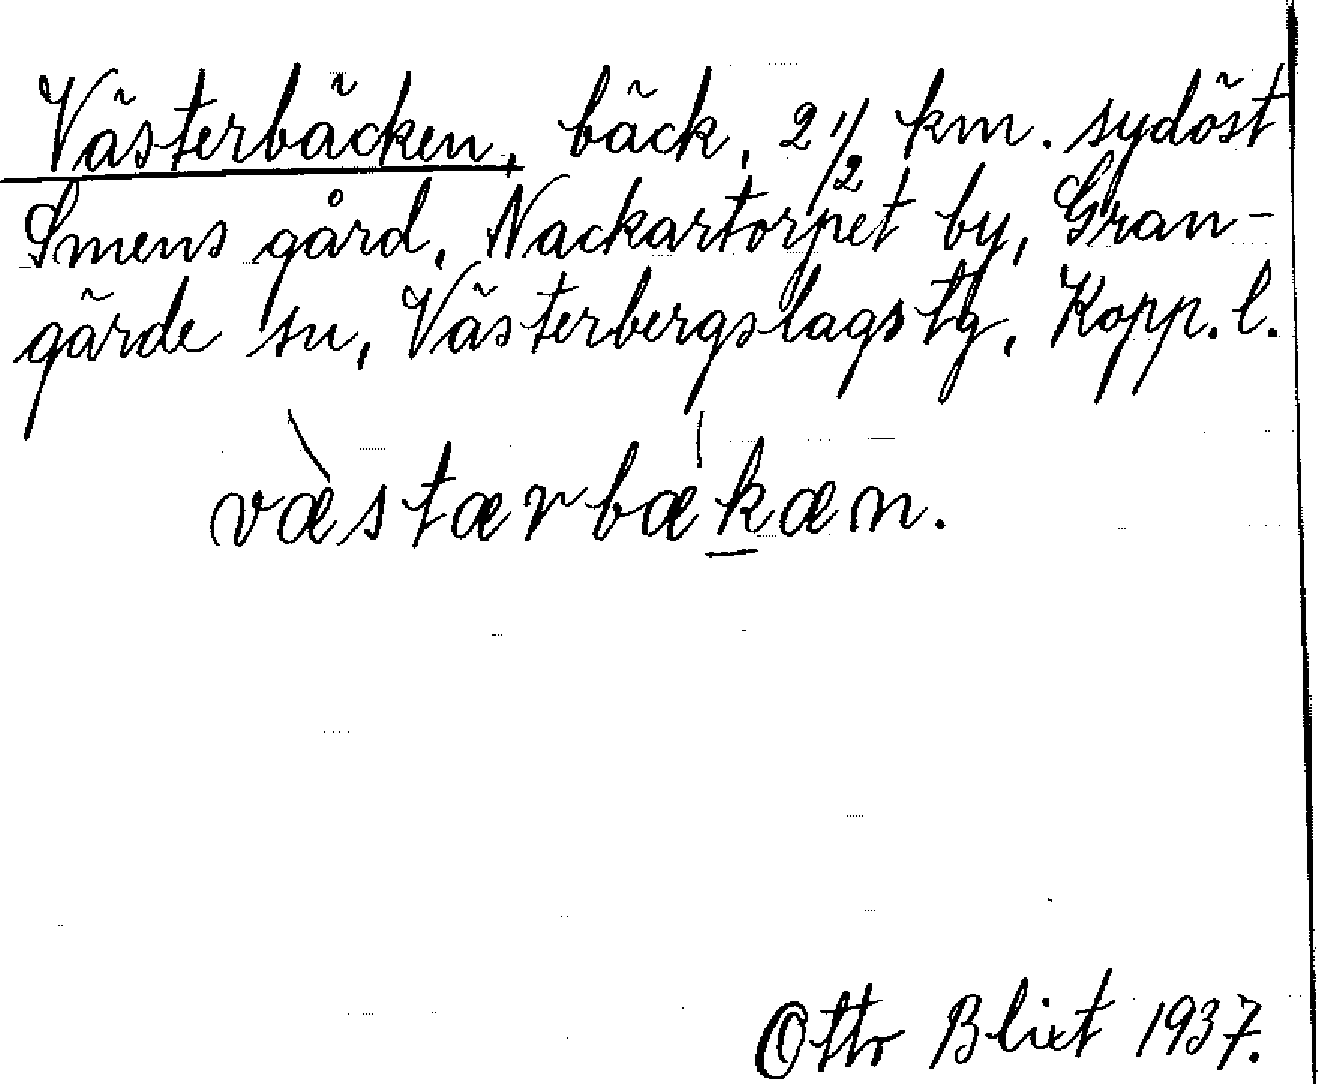 Västerbäcken, bäck, 2 1/2 km. sydöst
Smens gård, Nackartorpet by, Gran-
gärde sn, Västerbergslags tg, Kopp. l.
væ̀stærbækæn.
Otto Blixt 1937.